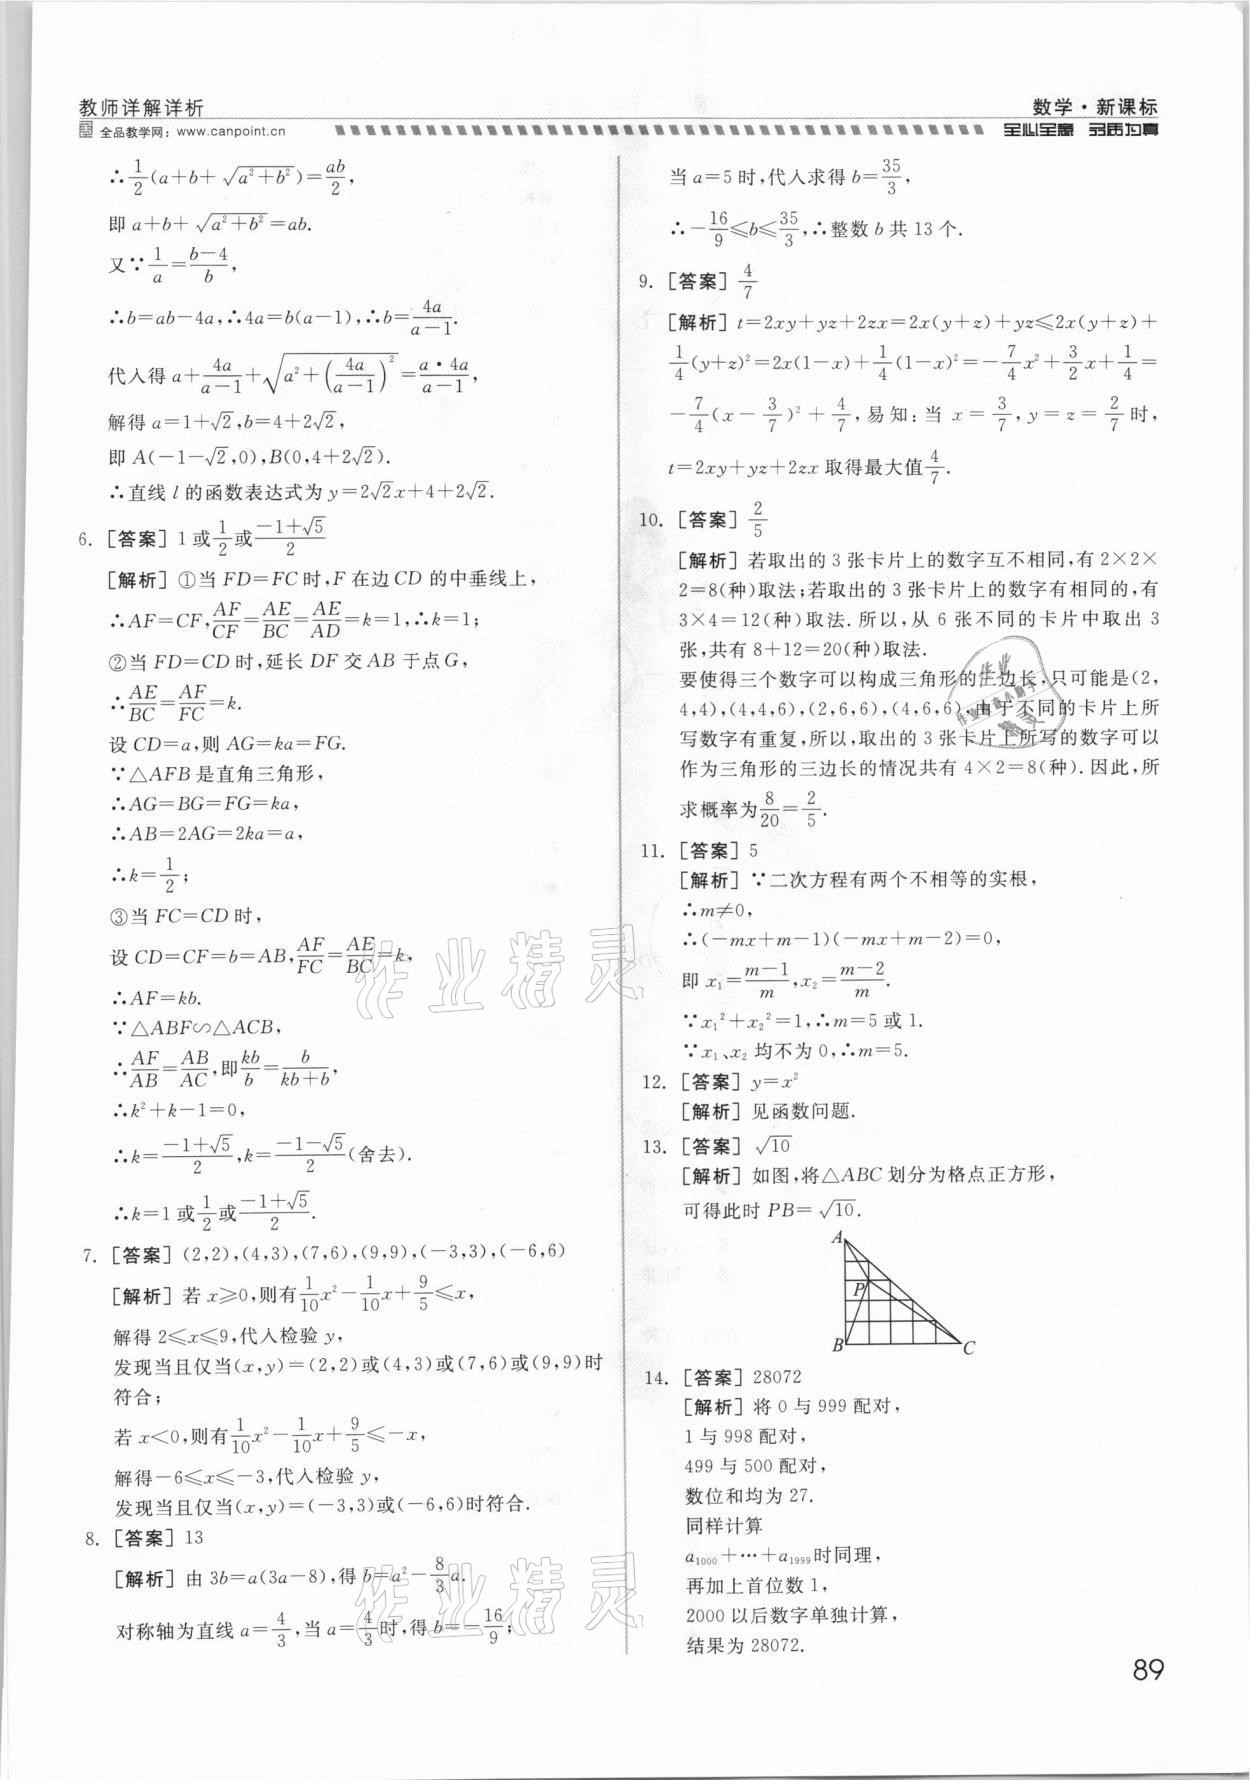 教师详解详析
全品教学网：www.canpoint.cn
数学·新课标
全心全意 品质为真
∴1/2(a+b+√(a²+b²))=ab/2,
即 a+b+√(a²+b²)=ab.
又∵1/a=(b-4)/b,
∴b=ab-4a,∴4a=b(a-1),∴b=4a/(a-1).
代入得 a+4a/(a-1)+√(a²+(4a/(a-1))²)=a·4a/(a-1),
解得 a=1+√2,b=4+2√2,
即 A(-1-√2,0),B(0,4+2√2).
∴直线 l 的函数表达式为 y=2√2x+4+2√2.
6. [答案] 1 或1/2或(-1+√5)/2
[解析] ①当 FD=FC 时,F 在边 CD 的中垂线上,
∴AF=CF,AF/CF=AE/BC=AE/AD=k=1,∴k=1;
②当 FD=CD 时,延长 DF 交 AB 于点 G,
∴AE/BC=AF/FC=k.
设 CD=a,则 AG=ka=FG.
∵△AFB 是直角三角形,
∴AG=BG=FG=ka,
∴AB=2AG=2ka=a,
∴k=1/2;
③当 FC=CD 时,
设 CD=CF=b=AB,AF/FC=AE/BC=k,
∴AF=kb.
∵△ABF∽△ACB,
∴AF/AB=AB/AC,即kb/b=b/(kb+b),
∴k²+k-1=0,
∴k=(-1+√5)/2,k=(-1-√5)/2(舍去).
∴k=1 或1/2或(-1+√5)/2.
7. [答案] (2,2),(4,3),(7,6),(9,9),(-3,3),(-6,6)
[解析] 若 x≥0,则有1/10x²-1/10x+9/5≤x,
解得 2≤x≤9,代入检验 y,
发现当且仅当(x,y)=(2,2)或(4,3)或(7,6)或(9,9)时
符合;
若 x<0,则有1/10x²-1/10x+9/5≤-x,
解得-6≤x≤-3,代入检验 y,
发现当且仅当(x,y)=(-3,3)或(-6,6)时符合.
8. [答案] 13
[解析] 由 3b=a(3a-8),得 b=a²-8/3a.
对称轴为直线 a=4/3,当 a=4/3时,得 b=-16/9;
当 a=5 时,代入求得 b=35/3,
∴-16/9≤b≤35/3,∴整数 b 共 13 个.
9. [答案] 4/7
[解析] t=2xy+yz+2zx=2x(y+z)+yz≤2x(y+z)+
1/4(y+z)²=2x(1-x)+1/4(1-x)²=-7/4x²+3/2x+1/4=
-7/4(x-3/7)²+4/7,易知:当 x=3/7,y=z=2/7时,
t=2xy+yz+2zx 取得最大值4/7.
10. [答案] 2/5
[解析] 若取出的 3 张卡片上的数字互不相同,有 2×2×
2=8(种)取法;若取出的 3 张卡片上的数字有相同的,有
3×4=12(种)取法.所以,从 6 张不同的卡片中取出 3
张,共有 8+12=20(种)取法.
要使得三个数字可以构成三角形的三边长,只可能是(2,
4,4),(4,4,6),(2,6,6),(4,6,6),由于不同的卡片上所
写数字有重复,所以,取出的 3 张卡片上所写的数字可以
作为三角形的三边长的情况共有 4×2=8(种).因此,所
求概率为8/20=2/5.
11. [答案] 5
[解析] ∵二次方程有两个不相等的实根,
∴m≠0,
∴(-mx+m-1)(-mx+m-2)=0,
即 x₁=(m-1)/m,x₂=(m-2)/m.
∵x₁²+x₂²=1,∴m=5 或 1.
∵x₁、x₂ 均不为 0,∴m=5.
12. [答案] y=x²
[解析] 见函数问题.
13. [答案] √10
[解析] 如图,将△ABC 划分为格点正方形,
可得此时 PB=√10.
A
P
B
C
14. [答案] 28072
[解析] 将 0 与 999 配对,
1 与 998 配对,
499 与 500 配对,
数位和均为 27.
同样计算
a₁₀₀₀+…+a₁₉₉₉时同理,
再加上首位数 1,
2000 以后数字单独计算,
结果为 28072.
作业精灵
作业精灵
89